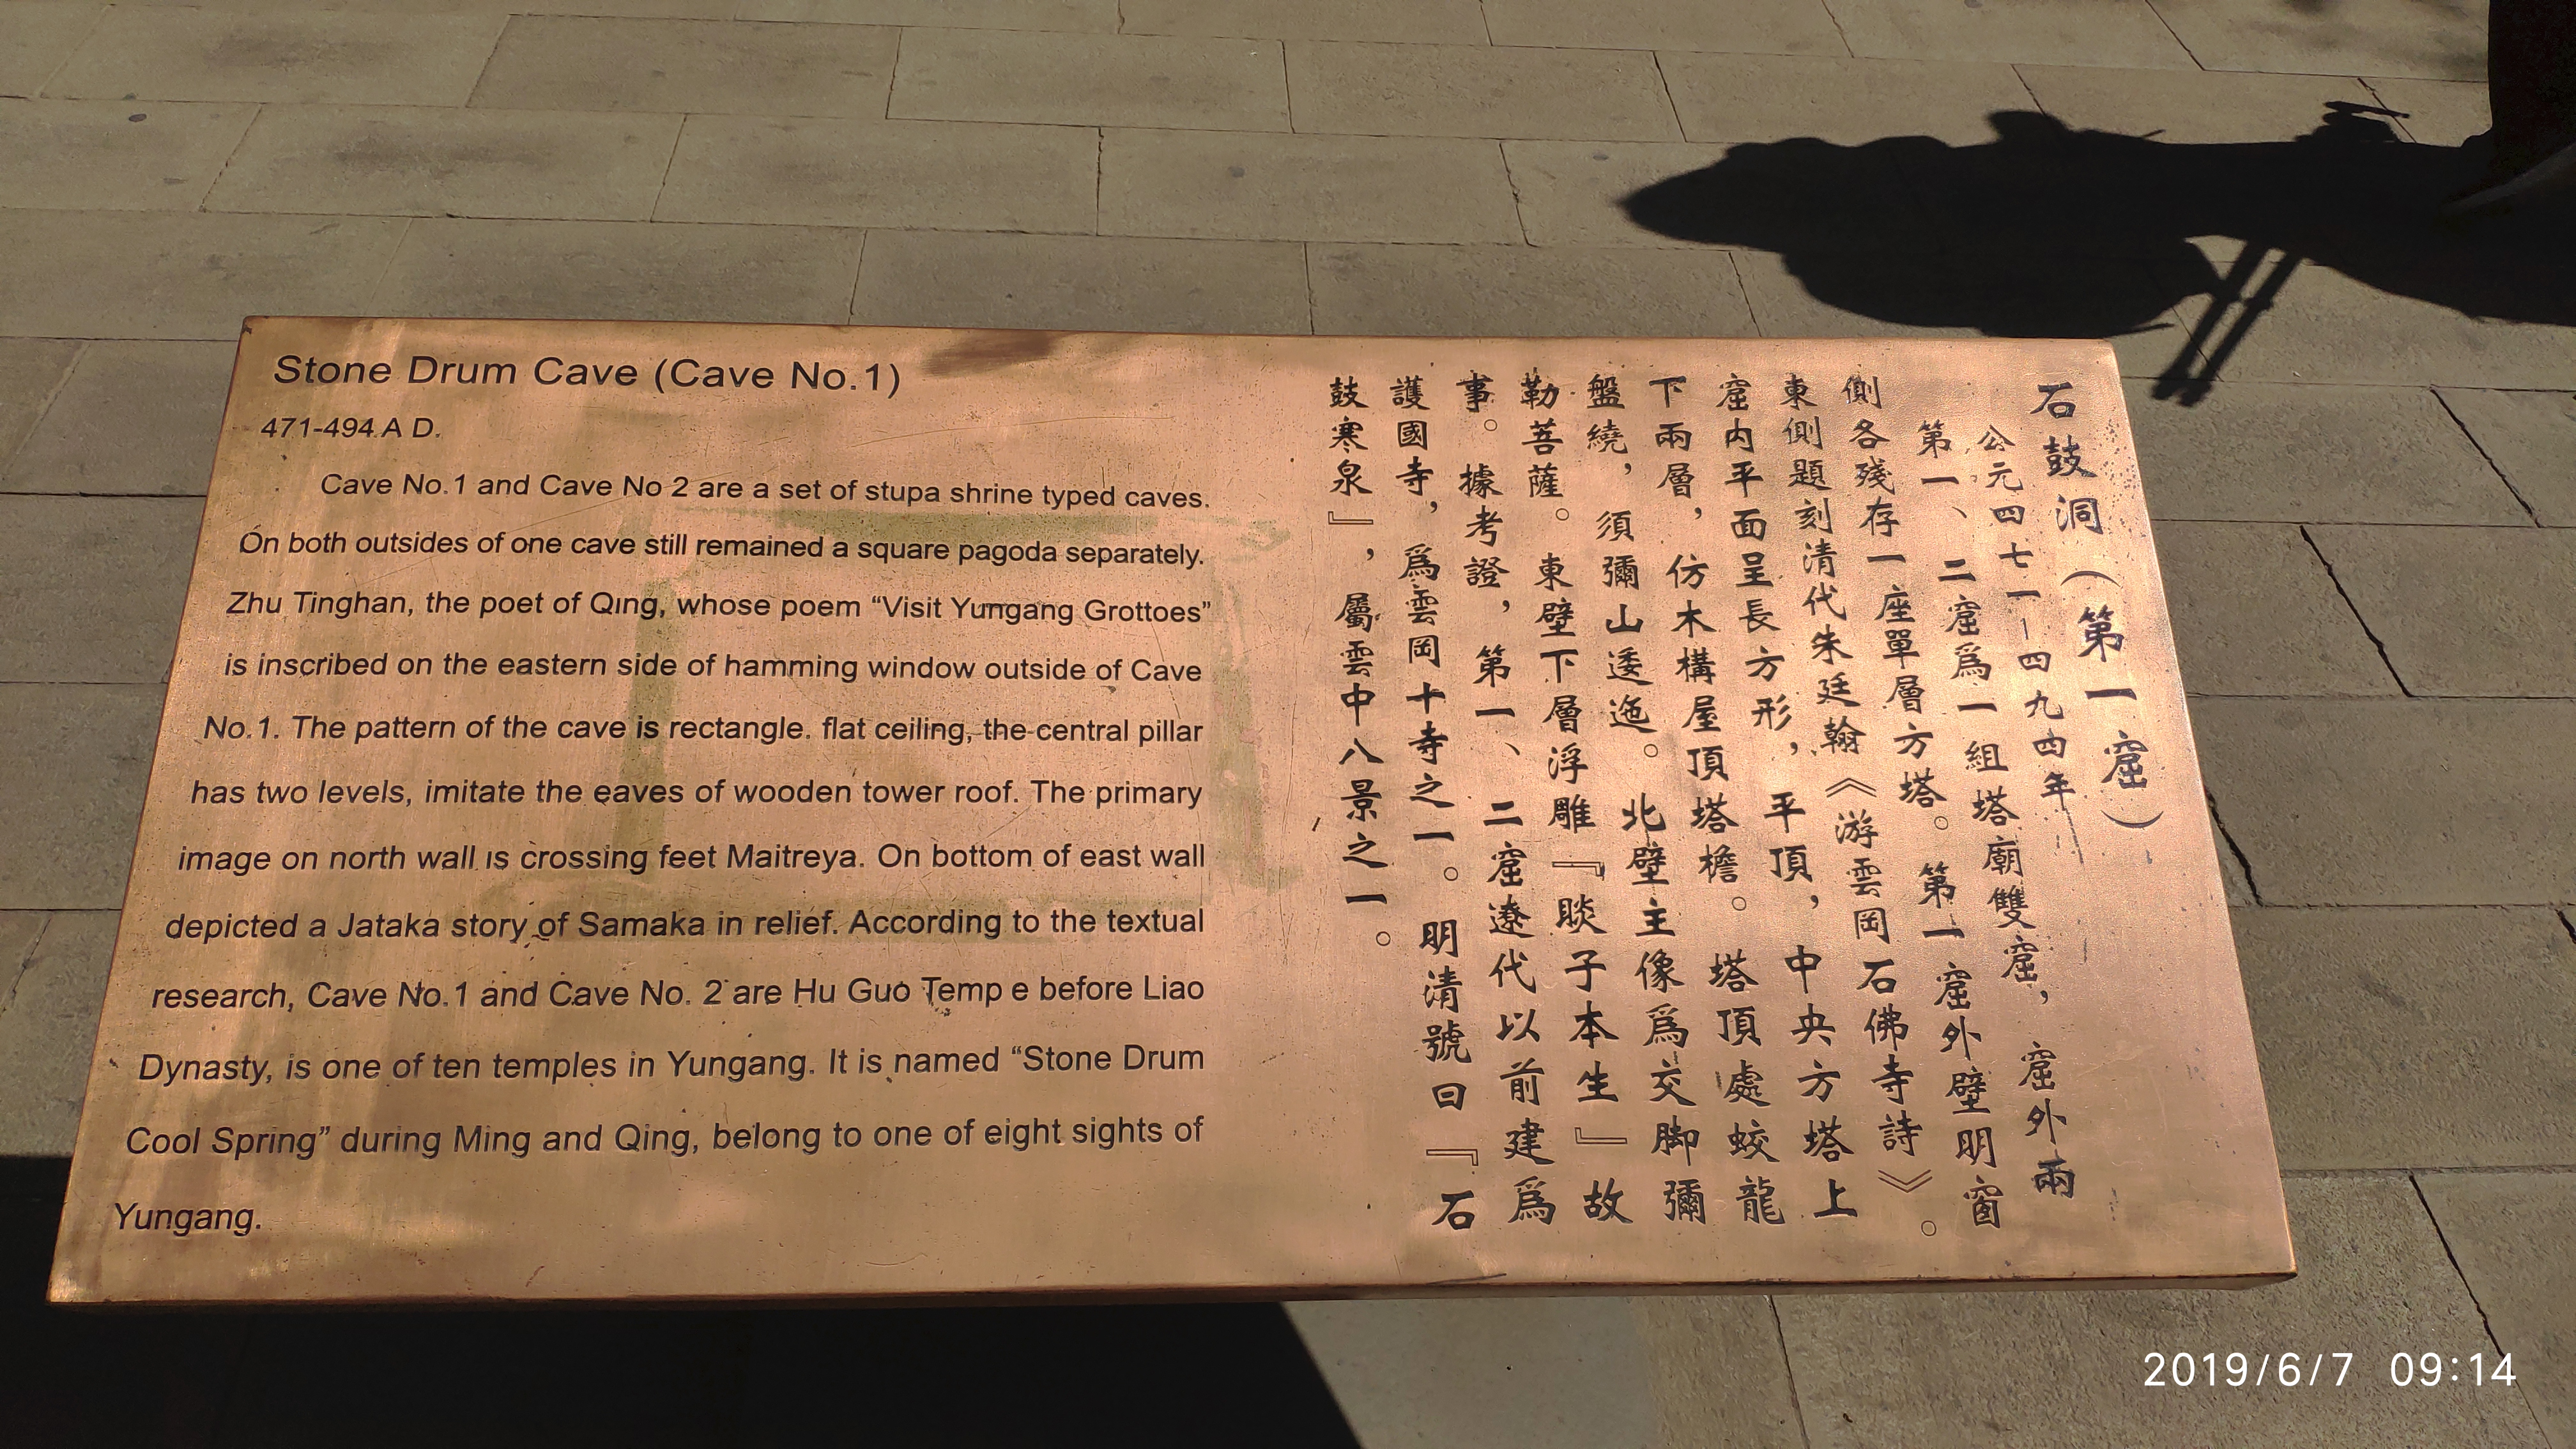 Stone Drum Cave (Cave No.1)
471-494 A D.
Cave No.1 and Cave No 2 are a set of stupa shrine typed caves.
On both outsides of one cave still remained a square pagoda separately.
Zhu Tinghan, the poet of Qing, whose poem “Visit Yungang Grottoes”
is inscribed on the eastern side of hamming window outside of Cave
No.1. The pattern of the cave is rectangle. flat ceiling, the central pillar
has two levels, imitate the eaves of wooden tower roof. The primary
image on north wall is crossing feet Maitreya. On bottom of east wall
depicted a Jataka story of Samaka in relief. According to the textual
research, Cave No.1 and Cave No. 2 are Hu Guo Temp e before Liao
Dynasty, is one of ten temples in Yungang. It is named “Stone Drum
Cool Spring” during Ming and Qing, belong to one of eight sights of
Yungang.
石鼓洞（第一窟）
公元四七一—四九四年
第一、二窟爲一組塔廟雙窟，窟外兩
側各殘存一座單層方塔。第一窟外壁明窗
東側題刻清代朱廷翰《游雲岡石佛寺詩》。
窟内平面呈長方形，平頂，中央方塔上
下兩層，仿木構屋頂塔檐。塔頂處蛟龍
盤繞，須彌山逶迤。北壁主像爲交脚彌
勒菩薩。東壁下層浮雕『睒子本生』故
事。據考證，第一、二窟遼代以前建爲
護國寺，爲雲岡十寺之一。明清號曰『石
鼓寒泉』，屬雲中八景之一。
2019/6/7 09:14